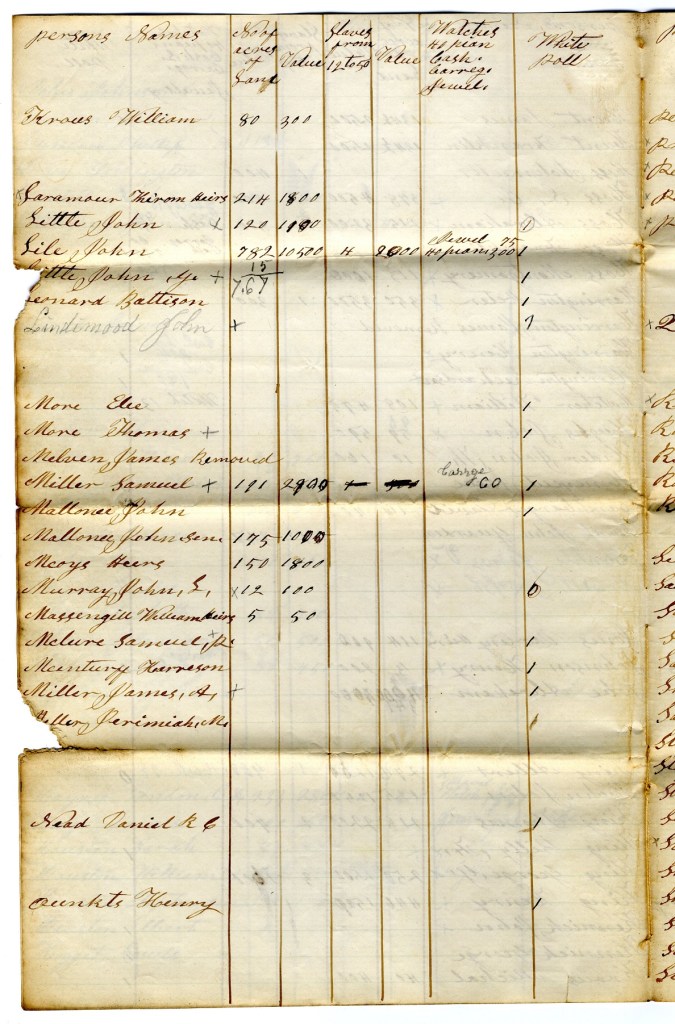 persons Names No of acres of Land Value Slaves from 12 to 50 Value Watches pian Cash Carreg. Jewel. White Poll
Krous William 80 300
Laramour Thirom Heirs 214 1800
Little John + 120 1
Lile John 782 10500 4 Jewel 75 pian 300 1
15
Little John, + 767 1
Leonard Battison 1
Lindimood John + 1
More Elec 1
More Thomas + 1
Melven James Removed
Miller Samuel + 191 Carrge 60 1
Mallonee John 1
Mallonee John Sen 175 1000
Mcoys Heirs 150 1800
Murray John, L, x 12 100 0
Massengill William Heirs 5 50
Mclure Samuel, 1
Mcentury Harreson 1
Miller James, A, + 1
Miller Jerimiah, Mc 1
Nead Daniel K C 1
Henry 1